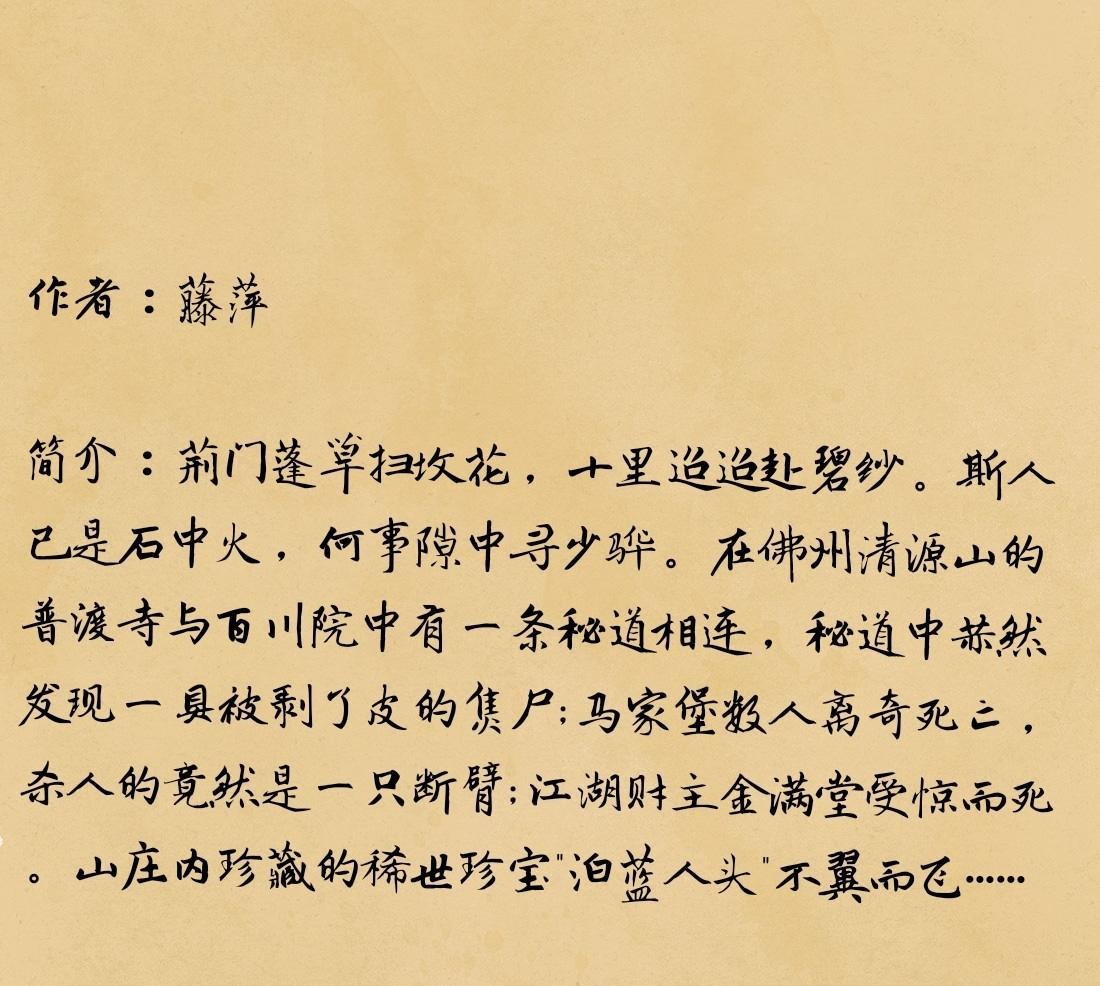 作者：藤萍
简介：荊门蓬箪扫坟花，十里迢迢赴碧纱。斯人
已是石中火，何事隙中寻少骅。在佛州清源山的
普渡寺与百川院中有一条秘道相连，秘道中赫然
发现一具被剥了皮的焦尸；马家堡数人离奇死亡，
杀人的竟然是一只断臂；江湖财主金满堂受惊而死
。山庄内珍藏的稀世珍宝"泊蓝人头"不翼而飞……